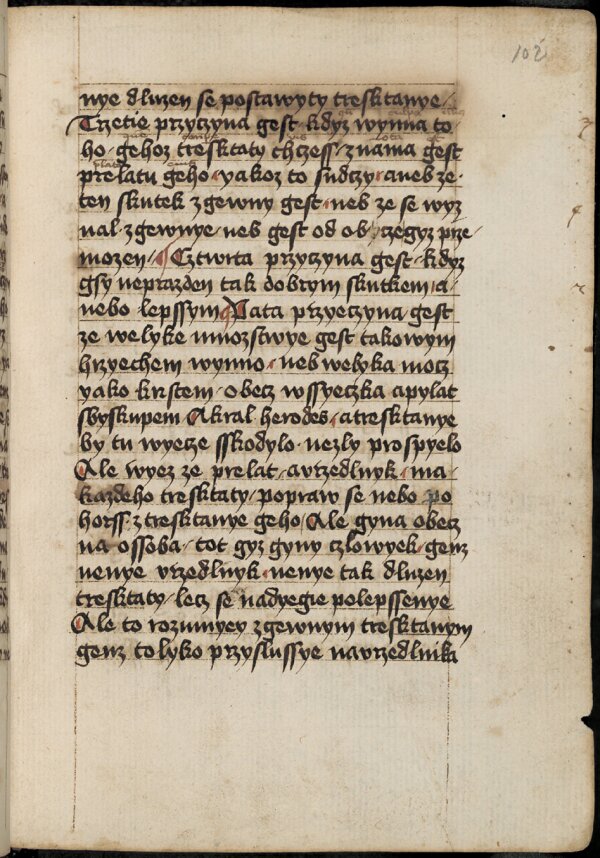 102
nye dluzen se postawyty tresktanye
Trzetie przyczyna gest kdyz wynna to
ho gehoz tresktaty chczess znama gest
prelatu geho yakoz to sudczy aneb ze
ten skutek zgewny gest neb ze se wyz
nal zgewnye neb gest od ob czegyz prze
mozen Cztwrta przyczyna gest kdyz
gsy neprazden tak dobrym skutkem a
nebo lepssym Pata przyeczyna gest
ze welyke mnozstwye gest takowym
hrzyechem wynno neb welyka mocz
yako krstem obecz wssyeczka a pylat
sbyskupem A kral herodes a tresktanye
by tu wyecze sskodylo nezly prospyelo
Ale wyez ze prelat a vrzedlnyk ma
kazdeho tresktaty popraw se nebo po
horss z tresktanye geho Ale gyna obecz
na ossoba tot gyz gyny czlowyek genz
nenye vrzedlnyk nenye tak dluzen
tresktaty lecz se nadyegie polepssenye
Ale to rozumyey zgewnym tresktanym
genz tolyko przyslussye navrzedlnika